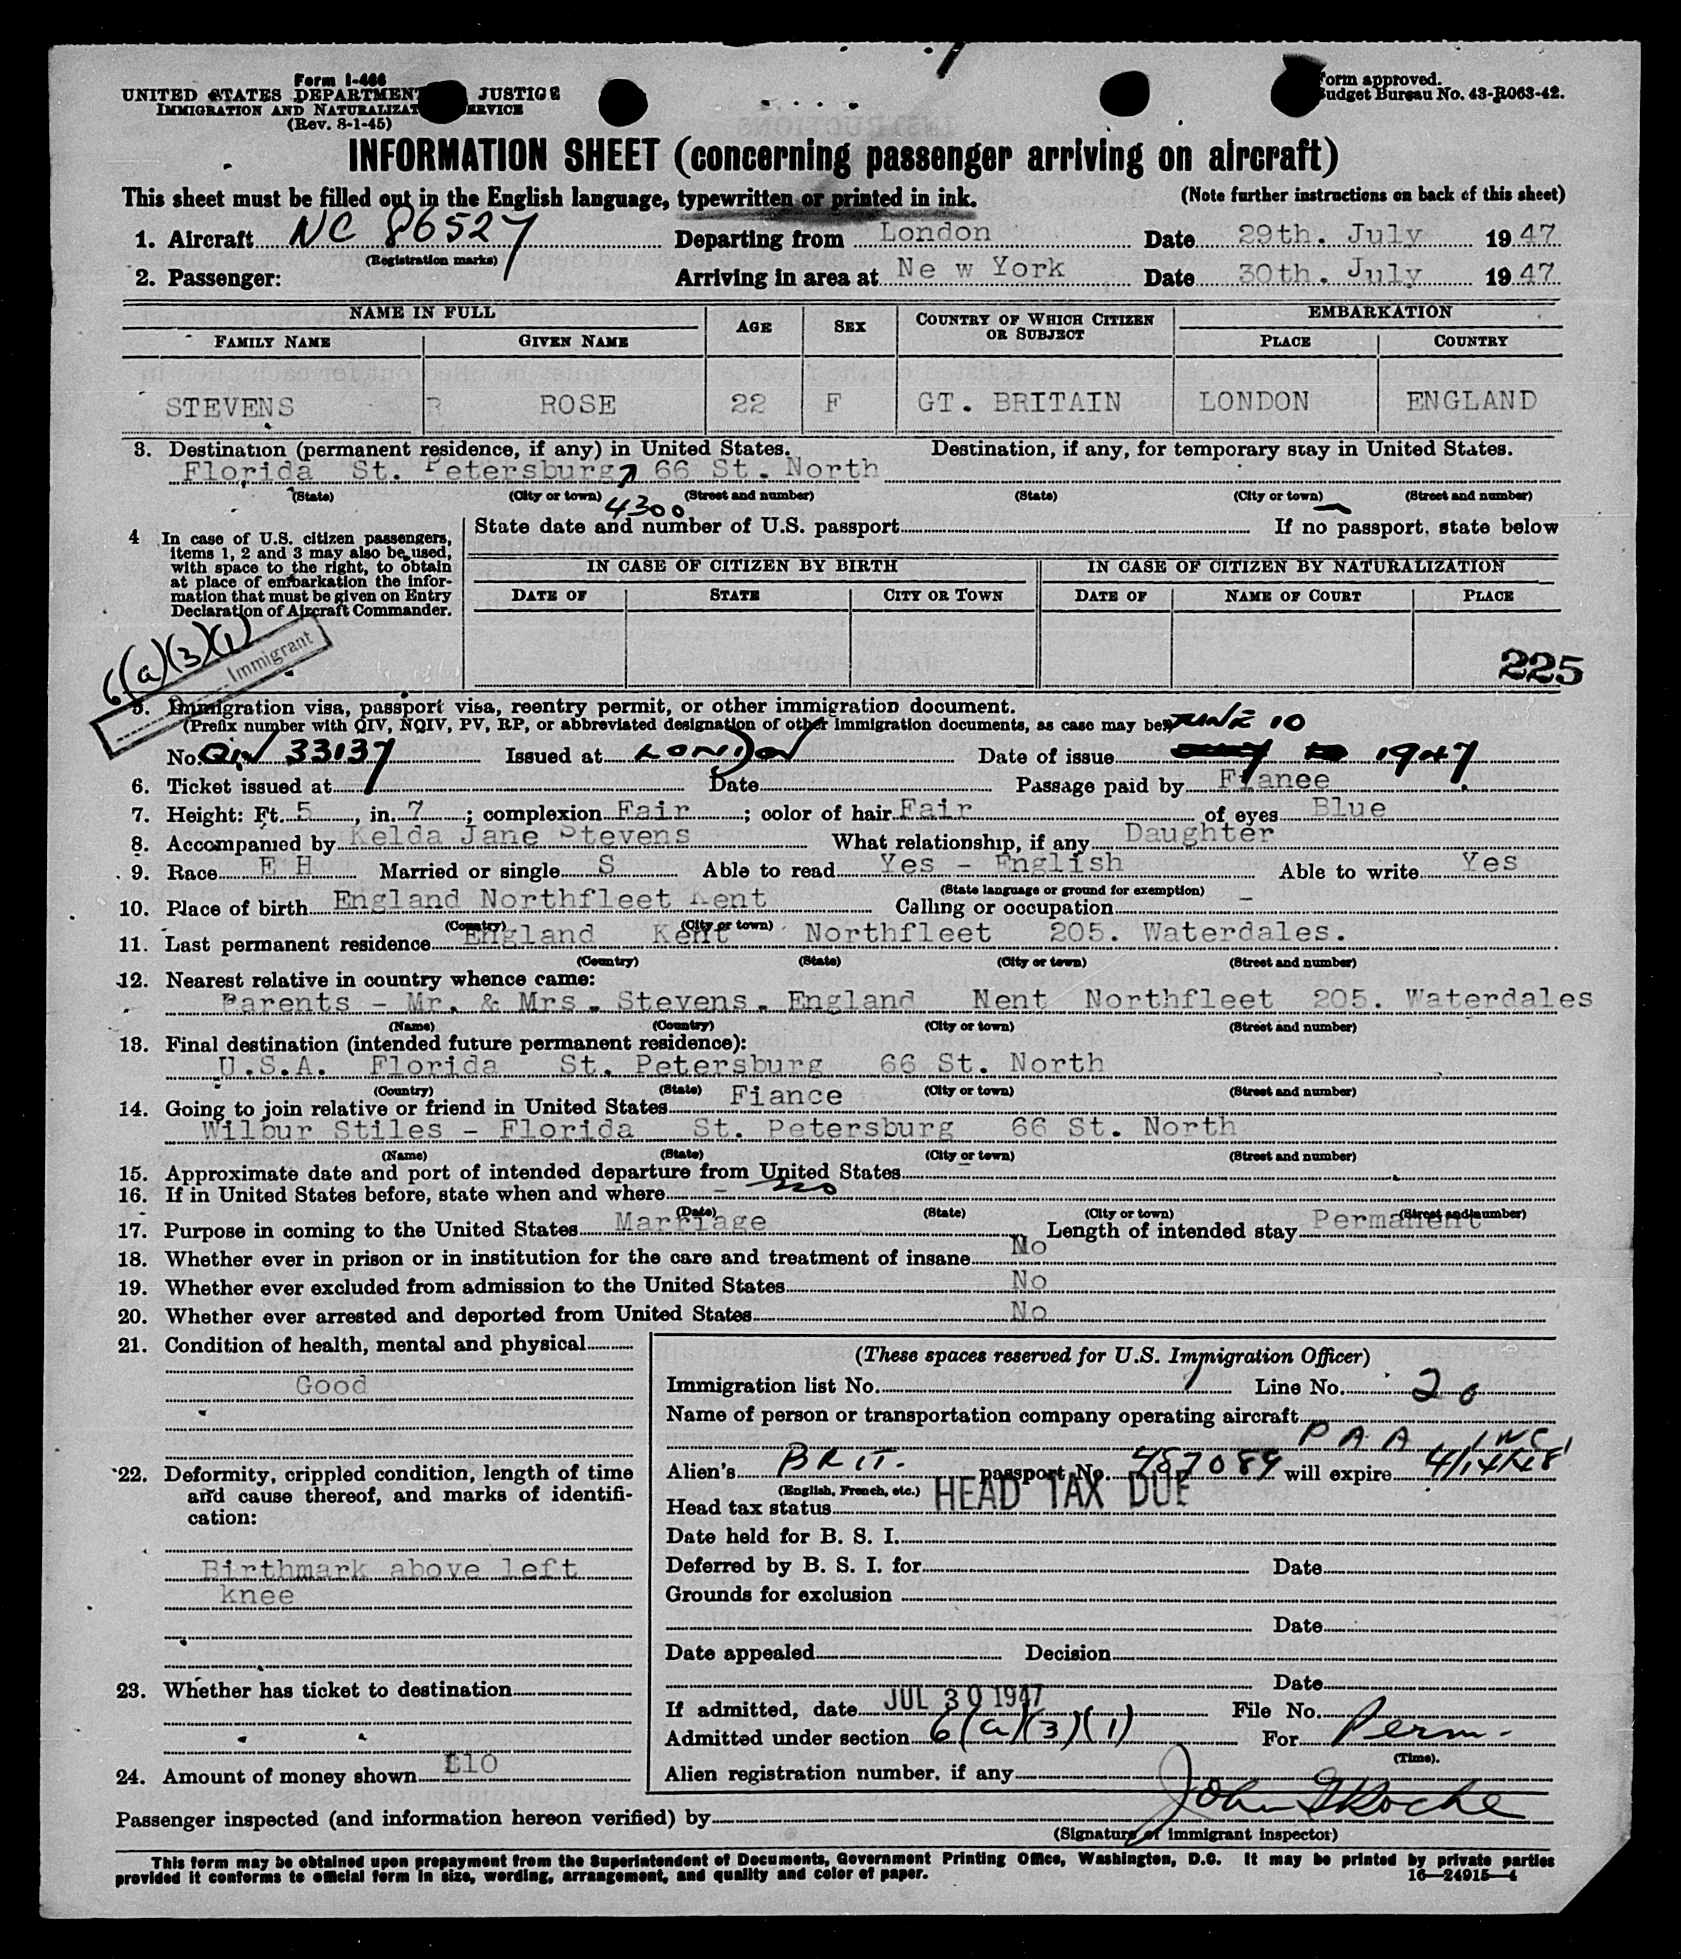 Form I-466
UNITED STATES DEPARTMENT JUSTICE
IMMIGRATION AND NATURALIZAT SERVICE
(Rev. 8-1-45)
Form approved.
Budget Bureau No. 43-R063-42.
INFORMATION SHEET (concerning passenger arriving on aircraft)
This sheet must be filled out in the English language, typewritten or printed in ink. (Note further instructions on back of this sheet)
1. Aircraft NC 86527 Departing from London Date 29th. July 1947
(Registration marks)
2. Passenger: Arriving in area at Ne w York Date 30th. July 1947
NAME IN FULL AGE SEX COUNTRY OF WHICH CITIZEN OR SUBJECT EMBARKATION
FAMILY NAME GIVEN NAME PLACE COUNTRY
STEVENS R ROSE 22 F GT. BRITAIN LONDON ENGLAND
3. Destination (permanent residence, if any) in United States. Destination, if any, for temporary stay in United States.
Florida St. Petersburg 66 St. North
(State) (City or town) (Street and number) (State) (City or town) (Street and number)
4300
4 In case of U.S. citizen passengers, items 1, 2 and 3 may also be used, with space to the right, to obtain at place of embarkation the information that must be given on Entry Declaration of Aircraft Commander.
State date and number of U.S. passport If no passport, state below
IN CASE OF CITIZEN BY BIRTH IN CASE OF CITIZEN BY NATURALIZATION
DATE OF STATE CITY OR TOWN DATE OF NAME OF COURT PLACE
6(a)(3)(1)
Immigrant
225
5. Immigration visa, passport visa, reentry permit, or other immigration document.
(Prefix number with QIV, NQIV, PV, RP, or abbreviated designation of other immigration documents, as case may be.) JUNE 10
No. QIV 33137 Issued at LONDON Date of issue 1947
6. Ticket issued at Date Passage paid by Fianee
7. Height: Ft. 5, in. 7; complexion Fair; color of hair Fair of eyes Blue
8. Accompanied by Kelda Jane Stevens What relationship, if any Daughter
9. Race E H Married or single S Able to read Yes - English Able to write Yes
(State language or ground for exemption)
10. Place of birth England Northfleet Kent Calling or occupation -
(Country) (City or town)
11. Last permanent residence England Kent Northfleet 205. Waterdales.
(Country) (State) (City or town) (Street and number)
12. Nearest relative in country whence came:
Parents - Mr. & Mrs. Stevens. England Nent Northfleet 205. Waterdales
(Name) (Country) (City or town) (Street and number)
13. Final destination (intended future permanent residence):
U.S.A. Florida St. Petersburg 66 St. North
(Country) (State) (City or town) (Street and number)
14. Going to join relative or friend in United States Fiance
Wilbur Stiles - Florida St. Petersburg 66 St. North
(Name) (State) (City or town) (Street and number)
15. Approximate date and port of intended departure from United States
16. If in United States before, state when and where - no
(Date) (State) (City or town) (Street and number)
17. Purpose in coming to the United States Marriage Length of intended stay Permanent
18. Whether ever in prison or in institution for the care and treatment of insane No
19. Whether ever excluded from admission to the United States No
20. Whether ever arrested and deported from United States No
21. Condition of health, mental and physical
Good
22. Deformity, crippled condition, length of time and cause thereof, and marks of identification:
Birthmark above left
knee
23. Whether has ticket to destination
24. Amount of money shown £10
(These spaces reserved for U.S. Immigration Officer)
Immigration list No. Line No. 20
Name of person or transportation company operating aircraft
P A A INC
Alien's BRIT. passport No. 487089 will expire 4/14/48
(English, French, etc.)
Head tax status HEAD TAX DUE
Date held for B. S. I.
Deferred by B. S. I. for Date
Grounds for exclusion
Date
Date appealed Decision
Date
If admitted, date JUL 30 1947 File No.
Admitted under section 6(a)(3)(1) For Perm.
(Time).
Alien registration number, if any
Passenger inspected (and information hereon verified) by John Roche
(Signature of immigrant inspector)
This form may be obtained upon prepayment from the Superintendent of Documents, Government Printing Office, Washington, D.C. It may be printed by private parties
provided it conforms to official form in size, wording, arrangement, and quality and color of paper. 16—24915-1